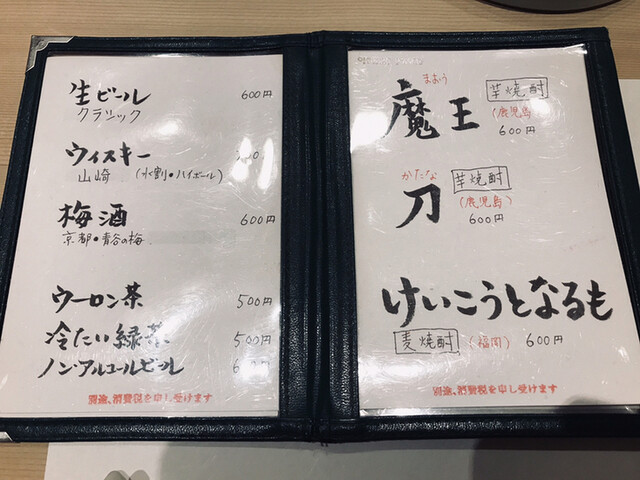 生ビール 600円
クラシック
ウィスキー
山崎 (水割•ハイボール)
梅酒 600円
京都•青谷の梅
ウーロン茶 500円
冷たい緑茶 500円
ノンアルコールビール
別途、消費税を申し受けます
まおう
魔王 芋焼酎
(鹿児島)
600円
かたな
刀 芋焼酎
(鹿児島)
600円
けいこうとなるも
麦焼酎 (福岡) 600円
別途、消費税を申し受けます